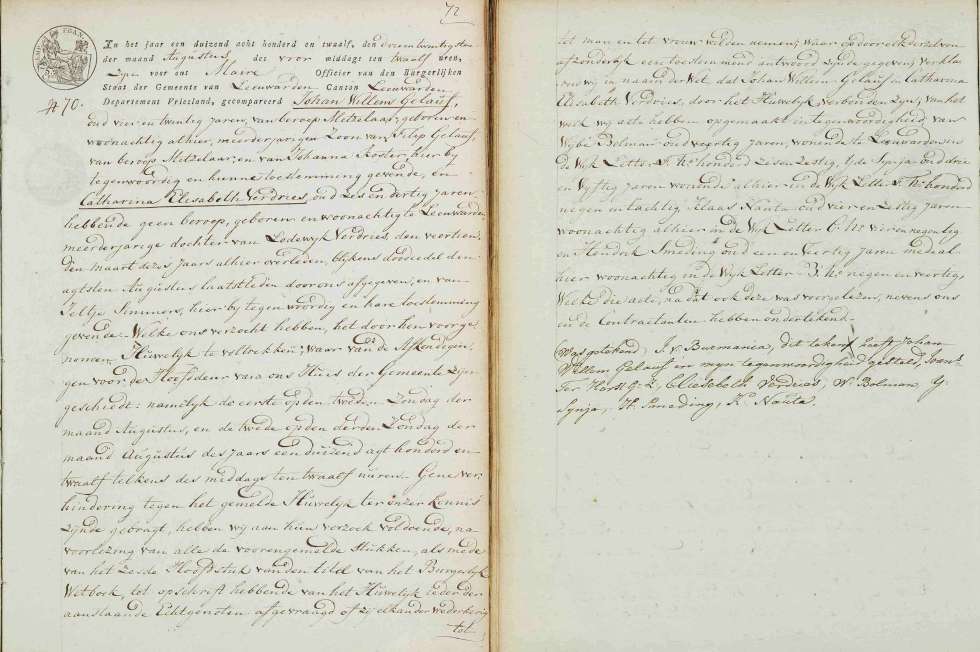 72
In het jaar een duizend acht honderd en twaalf, den drieentwintigsten
der maand Augustus des voor middags ten twaalf uren,
Zyn voor ons Maire Officier van den Burgerlijken
Staat der Gemeente van Leeuwarden Canton Leeuwarden
№ 70. Departement Friesland, gecompareerd Johan Willem Gelauf,
oud vier en twintig jaren, van beroep Metzelaar, geboren en
woonachtig alhier, meerderjarigen Zoon van Filip Gelauf,
van beroep Metzelaar, en van Johanna Koster, hier by
tegenwoordig en hunne toestemming gevende, en
Catharina Elisabeth Verdries, oud zes en dertig jaren,
hebbende geen beroep, geboren en woonachtig te Leeuwarden,
meerderjarige dochter van Lodewyk Verdries, den veertien-
den Maart dezes jaars alhier overleden, blijkens doodcedel den
agtsten Augustus laatstleden door ons afgegeven, en van
Jeltje Simmers, hier by tegenwoordig en hare toestemming
gevende. Welke ons verzocht hebben, het door hen voorge-
nomen Huwelijk te voltrekken, waar van de Afkondigin-
gen voor de Hoofddeur van ons Huis der Gemeente zijn
geschiedt: namelijk de eerste op den tweeden Zondag der
maand Augustus, en de twede op den derden Zondag der
maand Augustus des jaars een duizend agt honderd en
twaalf telkens des middags ten twaalf uuren. Gene ver-
hindering tegen het gemelde Huwelijk ter onzer kennis
zijnde gebragt, hebben wij aan hun verzoek voldoende, na
voorlezing van alle de voorengemelde stukken, als mede
van het zesde Hoofdstuk van den titel van het Burgerlijk
Wetboek, tot opschrift hebbende van het Huwelijk ieder der
aanstaande Echtgenoten afgevraagd of zij elkander wederkerig
tot
tot man en tot vrouw wilden nemen; waar op door elk derzelven
afzonderlijk een toestemmend antwoord zijnde gegeven, verkla-
ren wij in naam der Wet dat Johan Willem Gelauf en Catharina
Elisabeth Verdries, door het Huwelijk verbonden zyn, van het
welk wij acte hebben opgemaakt in tegenwoordigheid van
Wybe Bolman oud veertig jaren, wonende te Leeuwarden in
de Wijk Letter honderd zes en zestig, Y. de Synja oud drie
en Vyftig jaren wonende alhier in de Wijk Letter honderd
negen en tachtig, Klaas Nauta oud vier en zestig jaren
woonachtig alhier in de Wijk Letter G. No vier en negentig
en Hendrik Smeding oud een en Veertig jaren mede al-
hier woonachtig in de Wijk Letter B. No negen en veertig,
Welke die acte, na dat ook deze was voorgelezen, nevens ons
en de Contractanten hebben ondertekend.
(Was getekend) J. v. Burmania, dit teken heeft Johan
Willem Gelauf in myn tegenwoordigheid gesteld,
Ter Horst Elisabeth Verdries, W. Bolman, Y
Synja, H. Smeding, Ks Nauta.